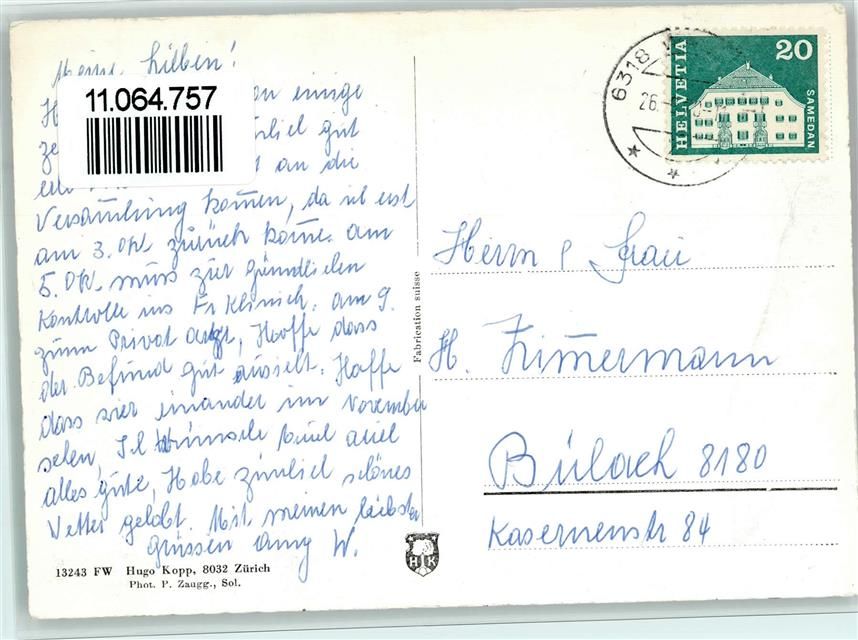 Meine Lieben!
11.064.757
einige
gut
an die
Versamlung komen, da ich erst
am 3. Okt. zurück kome. am
5. Okt. muss zur gründlichen
Kontrolle ins Fr Klinick. am 9.
zum Privat arzt, Hoffe dass
der Befund gut aussieht. Hoffe
dass wir einander im November
sehen, Ich wünsche Euch
alles gute, Habe zimlich schönes
Vetter gehabt. Mit meinen liebsten
Grüssen W.
13243 FW Hugo Kopp, 8032 Zürich
Phot. P. Zaugg., Sol.
Fabrication suisse
HK
6318
26.
HELVETIA
20
SAMEDAN
Herrn & Frau
H. Zimermann
Bülach 8180
Kasernenstr 84